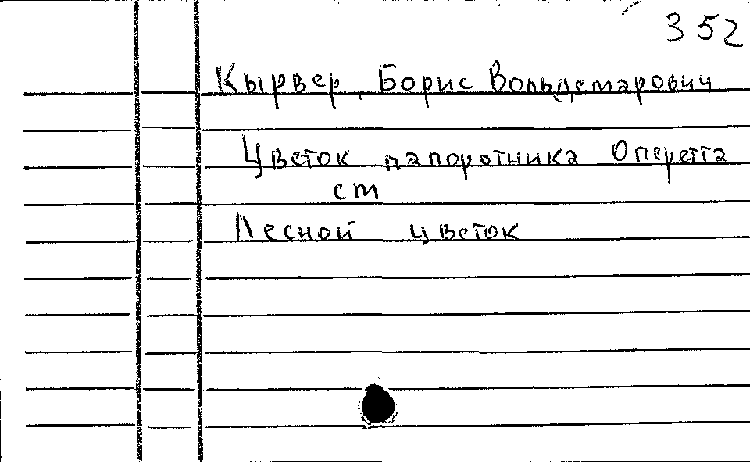 352
Кырвер, Борис Вольдемарович
Цветок папоротника Оперетта
см
Лесной цветок